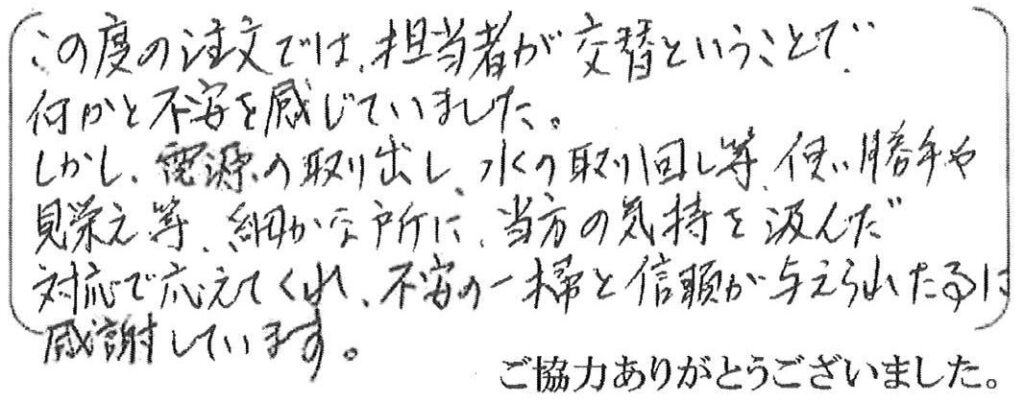 この度の注文では、担当者が交替ということで、
何かと不安を感じていました。
しかし、電源の取り出し、水の取り回し等、使い勝手や
見栄え等、細かな所に、当方の気持を汲んだ
対応で応えてくれ、不安の一掃と信頼が与えられたるに
感謝しています。
ご協力ありがとうございました。